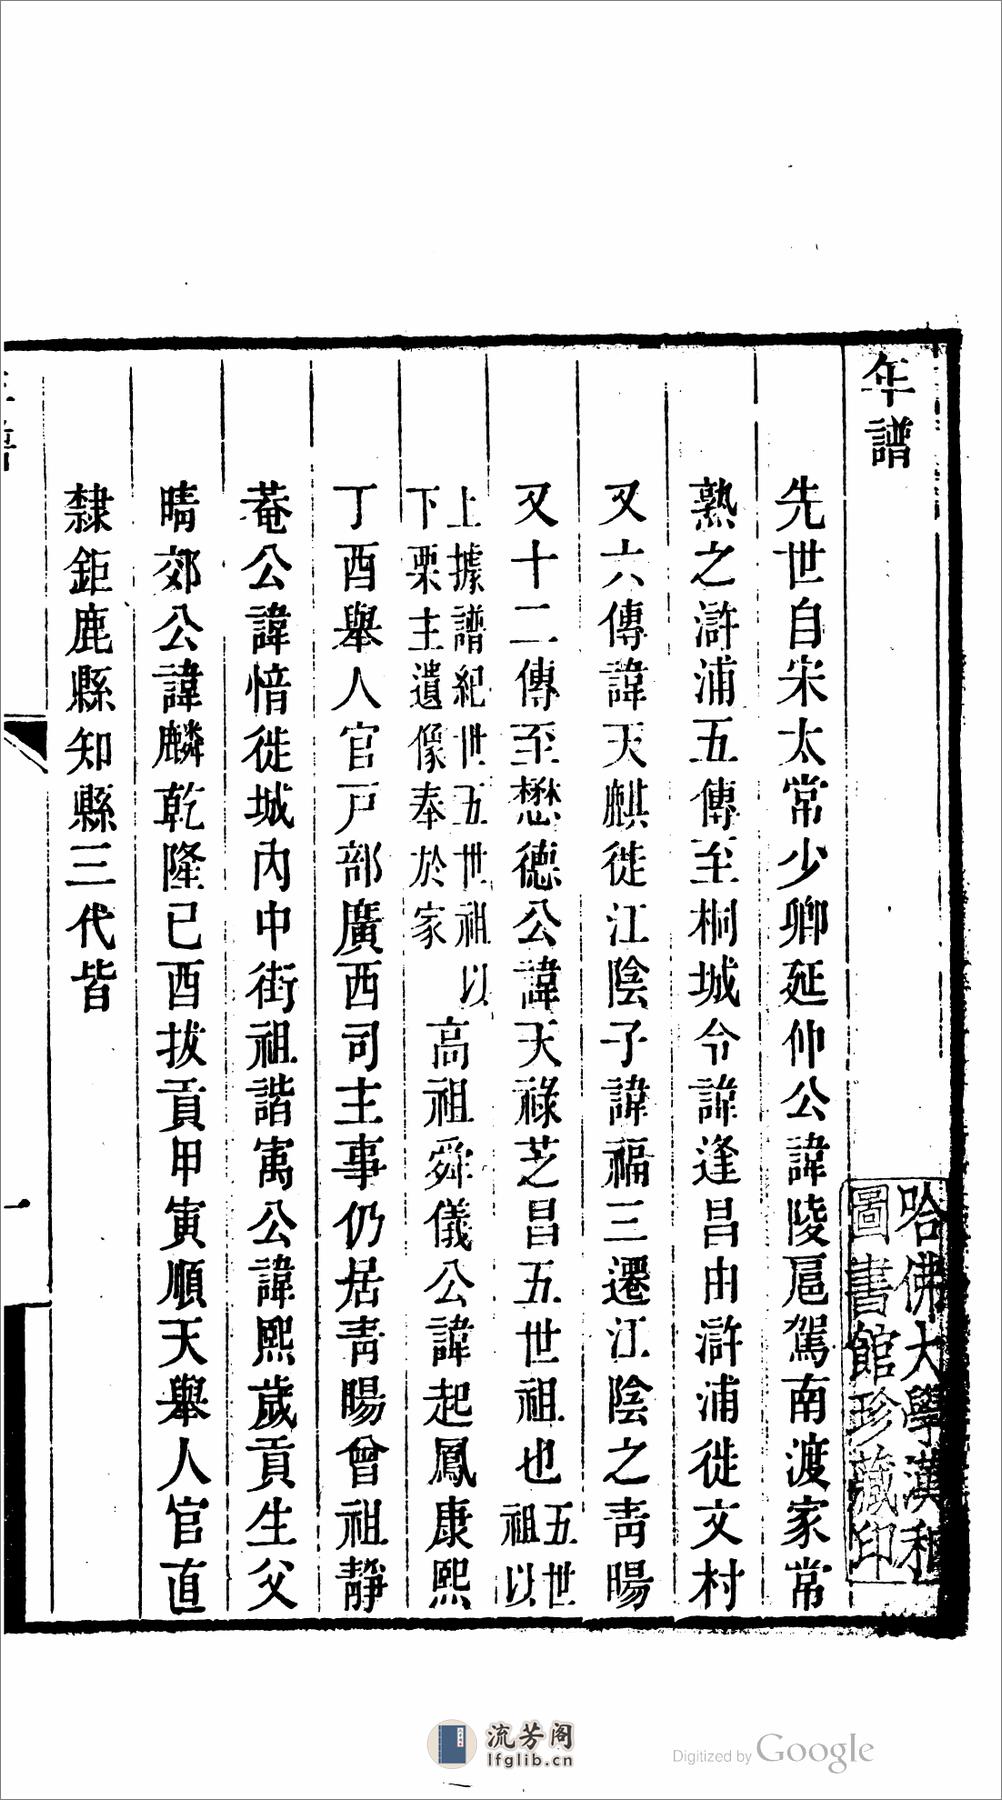 年譜
先世自宋太常少卿延仲公諱陵扈駕南渡家常
熟之滸浦五傳至桐城令諱逢昌由滸浦徙文村
又六傳諱天麒徙江陰子諱福三遷江陰之靑暘
又十二傳至懋德公諱天祿芝昌五世祖也五世祖以
上據譜紀世五世祖以下栗主遺像奉於家高祖舜儀公諱起鳳康熙
丁酉舉人官戸部廣西司主事仍居靑暘曾祖靜
菴公諱愔徙城內中街祖諧寓公諱熙歲貢生父
晴郊公諱麟乾隆已酉拔貢甲寅順天舉人官直
隸鉅鹿縣知縣三代皆
年譜
一
哈佛大學漢和
圖書館珍藏印
流芳阁
lfglib.cn
Digitized by Google